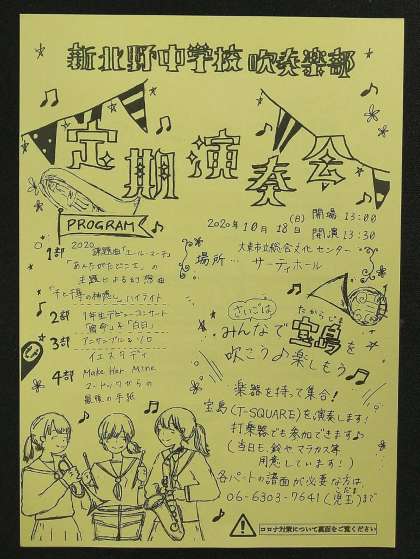 新北野中学校 吹奏楽部
定期演奏会
PROGRAM
2020年10月18日(日) 開場 13:00
開演 13:30
場所… 大東市立総合文化センター
サーティホール
1部 2020
課題曲「エール・マーチ」
「あんたがたどこさ」の
主題による幻想曲
「千と千尋の神隠し」ハイライト
2部 1年生デビューコンサート
「宿命」&「白日」
3部 アンサンブル&ソロ
イエスタデイ
4部 Make Her Mine
最後の手紙
さいごは
みんなで宝島を
たからじま
吹こう♪楽しもう♪
楽器を持って集合!
宝島(T-SQUARE)を演奏します!
打楽器でも参加できます♪
(当日も、鈴やマラカス等
用意しています!)
各パートの譜面が必要な方は、
06-6303-7641(児玉)まで
こだま
コロナ対策について裏面をご覧ください